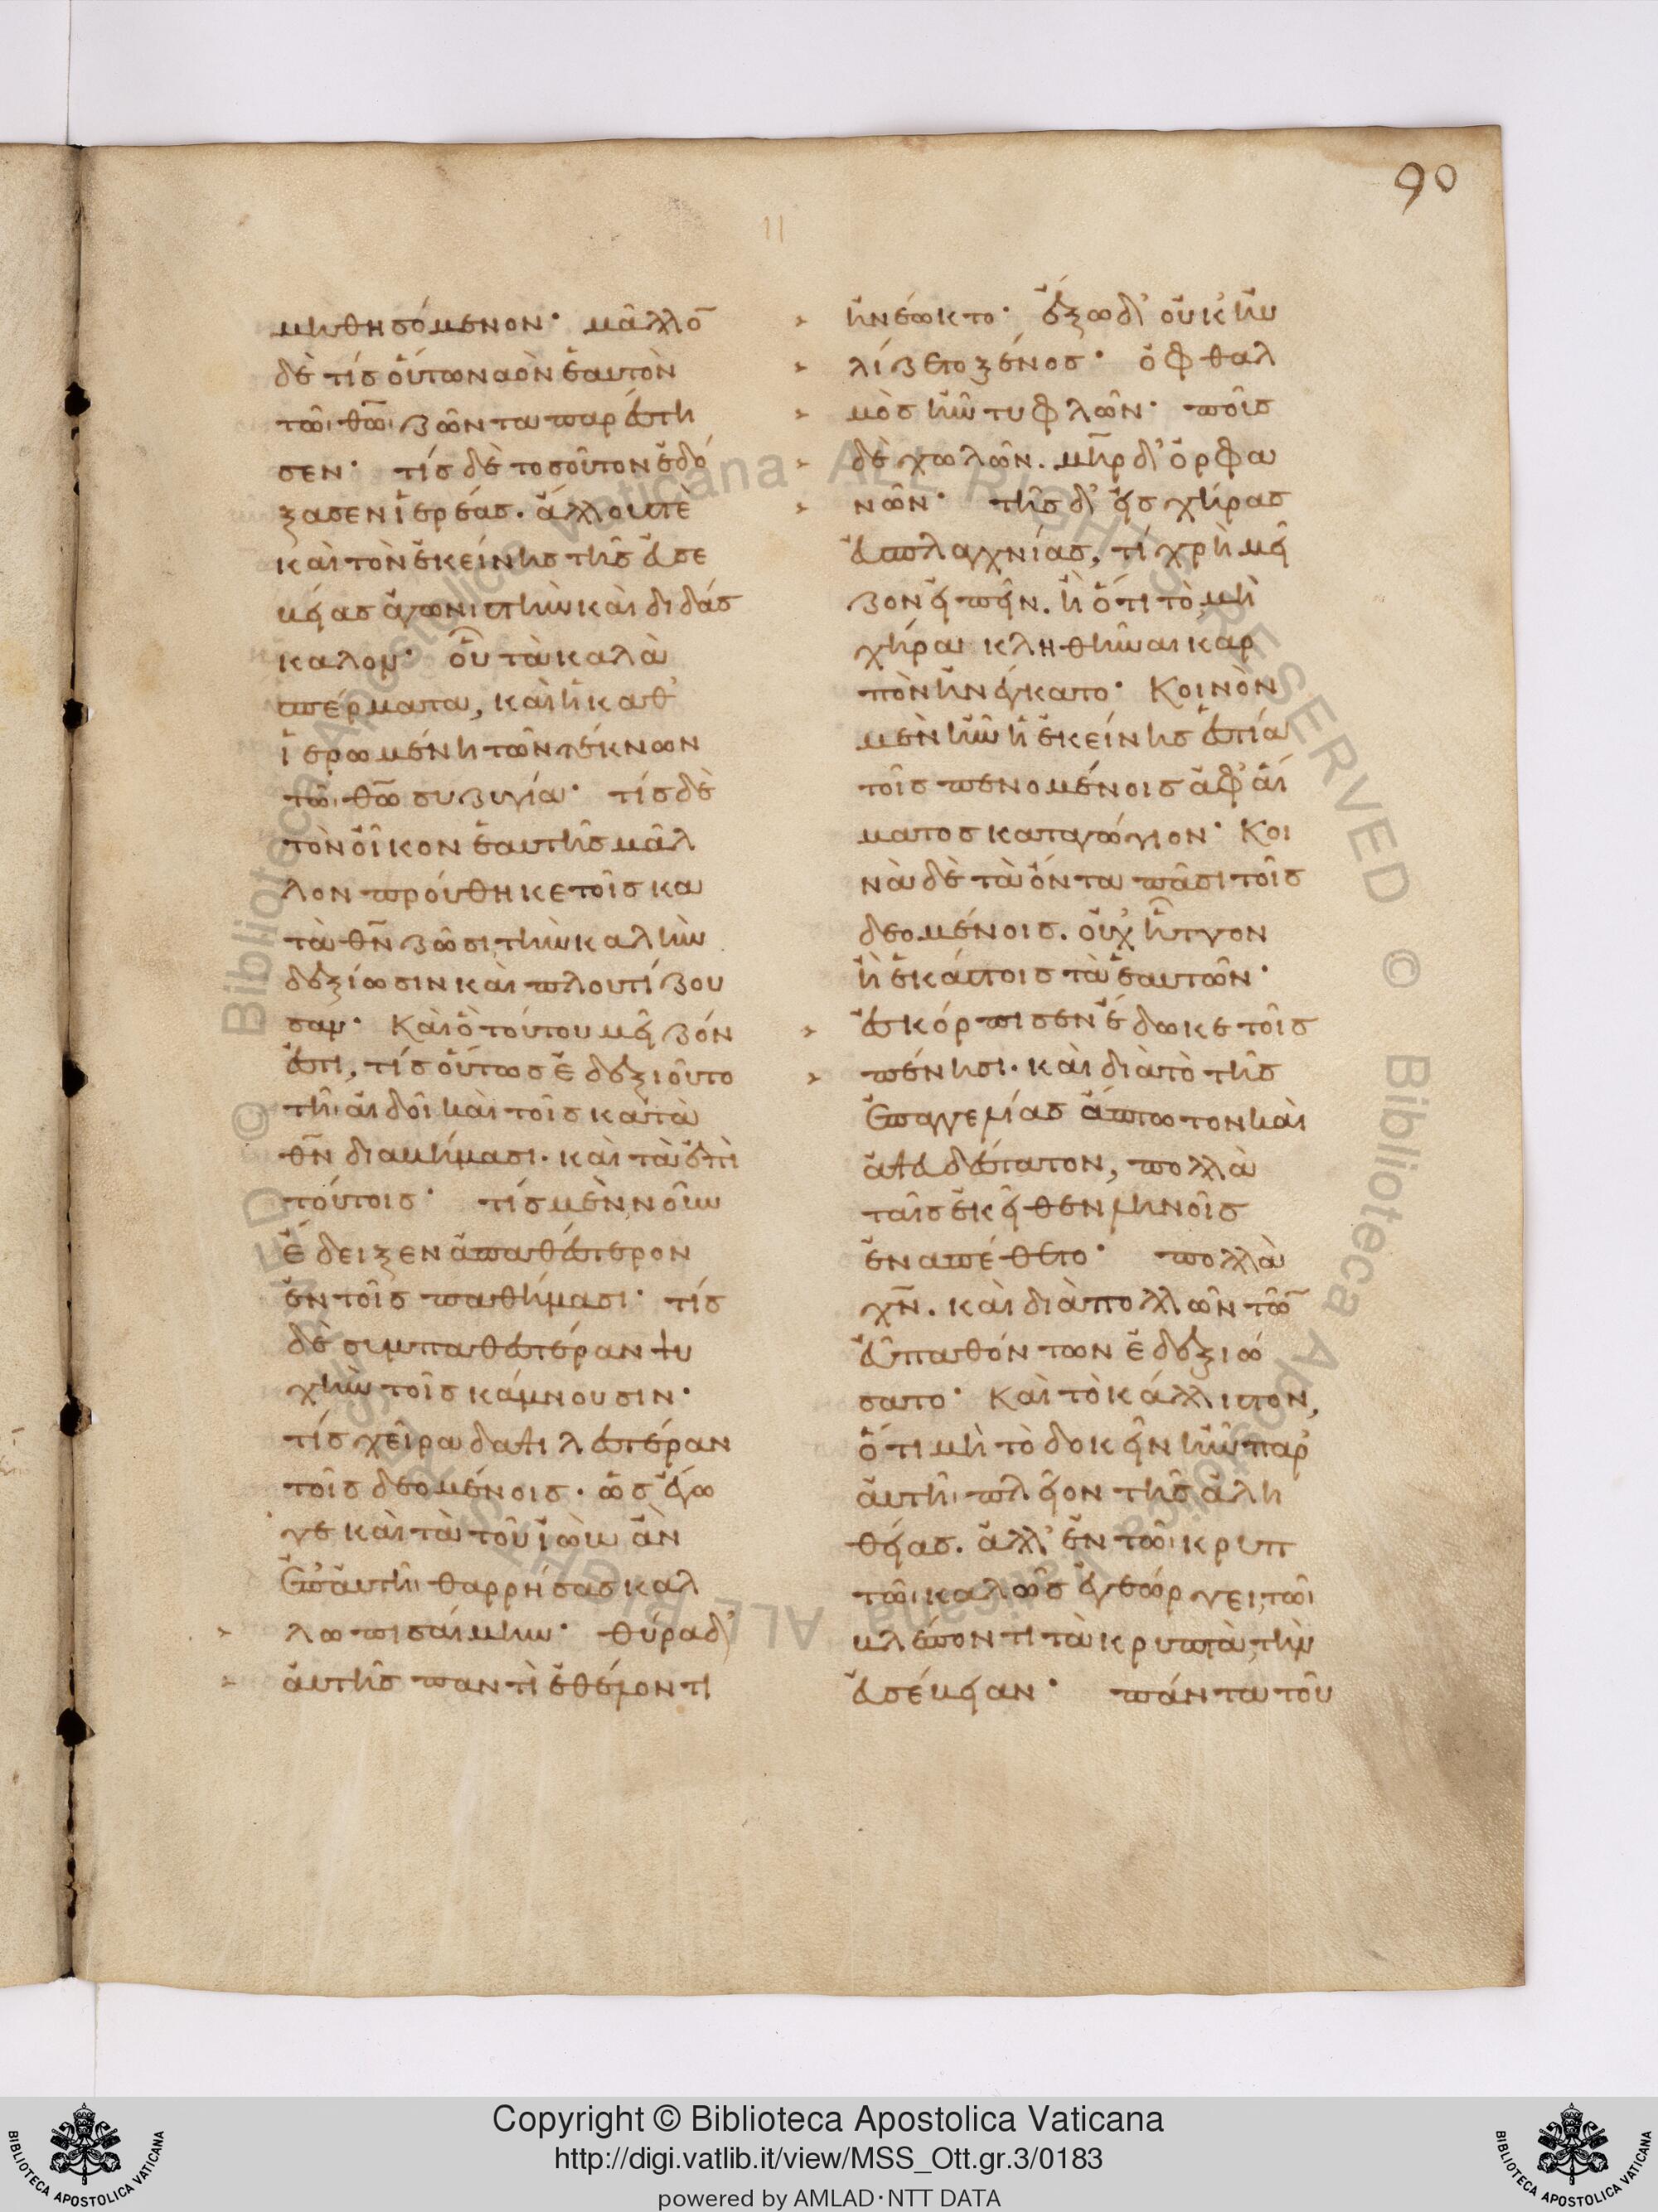 μνησθησόμενον· μᾶλλο̄
δὲ τίς οὕτω ναὸν ἑαυτὸν
τῶι θω̄ι ζῶντα παρέστη
σεν· τίς δὲ τοσοῦτον ἐδό
ξασεν ἱερέας. ἄλλους τὲ
καὶ τὸν ἐκείνης τῆς εὐσε
βείας ἀγωνιστὴν καὶ διδάσ
καλον· οὗ τὰ καλὰ
σπέρματα, καὶ ἡ καθ
ϊερωμένη τῶν τέκνων
τῶι θω̄ συζυγία· τίς δὲ
τὸν οἶκον ἑαυτῆς μᾶλ
λον προύθηκε τοῖς κα
τὰ θν̄ ζῶσι, τὴν καλὴν
δεξίωσιν καὶ πλουτίζου
σαν· Καὶ ὃ τούτου μεῖζόν
ἐστι, τίς οὕτως ἐδεξιοῦτο
τῆι αἰδοῖ καὶ τοῖς κατὰ
θν̄ διαβήμασι. καὶ τὰ ἐπὶ
τούτοις· τίς μὲν νοῦν
ἔδειξεν ἀπαθέστερον
ἐν τοῖς παθήμασι· τίς
δὲ συμπαθεστέραν ψυ
χὴν τοῖς κάμνουσιν·
τίς χεῖρα δαψιλεστέραν
τοῖς δεομένοις. ὡς ἔγω
γε καὶ τὰ τοῦ ϊὼβ ἂν
ἐπ' αὐτῆι θαρρήσας καλ
λωπισαίμην· θύρα δ'
αὐτῆς παντὶ ἐλθόντι
ἠνέωκτο· ἔξω δ' οὐκ ηὐ
λίζετο ξένος· ὀφθαλ
μὸς ἦν τυφλῶν· ποῦς
δὲ χωλῶν. μη̄ρ δ' ὀρφα
νῶν· τῆς δ' εἰς χήρας
εὐσπλαγχνίας, τί χρὴ μεῖ
ζον εἰπεῖν. ἢ ὅτι τὸ μὴ
χήρα κληθῆναι καρ
πὸν ἠνέγκατο· Κοινὸν
μὲν ἦν ἡ ἐκείνης ἑστία
τοῖς πενομένοις ἀφ' αἵ
ματος καταγώγιον· Κοι
νὰ δὲ τὰ ὄντα πᾶσι τοῖς
δεομένοις. οὐχ ἧττον
ἢ ἑκάστοις τὰ ἑαυτῶν·
ἐσκόρπισεν ἔδωκε τοῖς
πένησι. καὶ διὰ τὸ τῆς
ἐπαγγελίας ἄπτωτον καὶ
ἀψευδέστατον, πολλὰ
ταῖς ἐκεῖθεν ληνοῖς
ἐναπέθετο· πολλὰ
χν̄. καὶ διὰ πολλῶν τῶ̄
εὖ παθόντων ἐδεξιώ
σατο· Καὶ τὸ κάλλιστον,
ὅτι μὴ τὸ δοκεῖν ἦν παρ'
αὐτῆι πλεῖον τῆς ἀλη
θείας. ἀλλ' ἐν τῶι κρυπ
τῶι καλῶς ἐγεώργει, τῶι
βλέποντι τὰ κρυπτὰ, τὴν
εὐσέβειαν· πάντα τοῦ
90
11
Copyright © Biblioteca Apostolica Vaticana
http://digi.vatlib.it/view/MSS_Ott.gr.3/0183
powered by AMLAD·NTT DATA